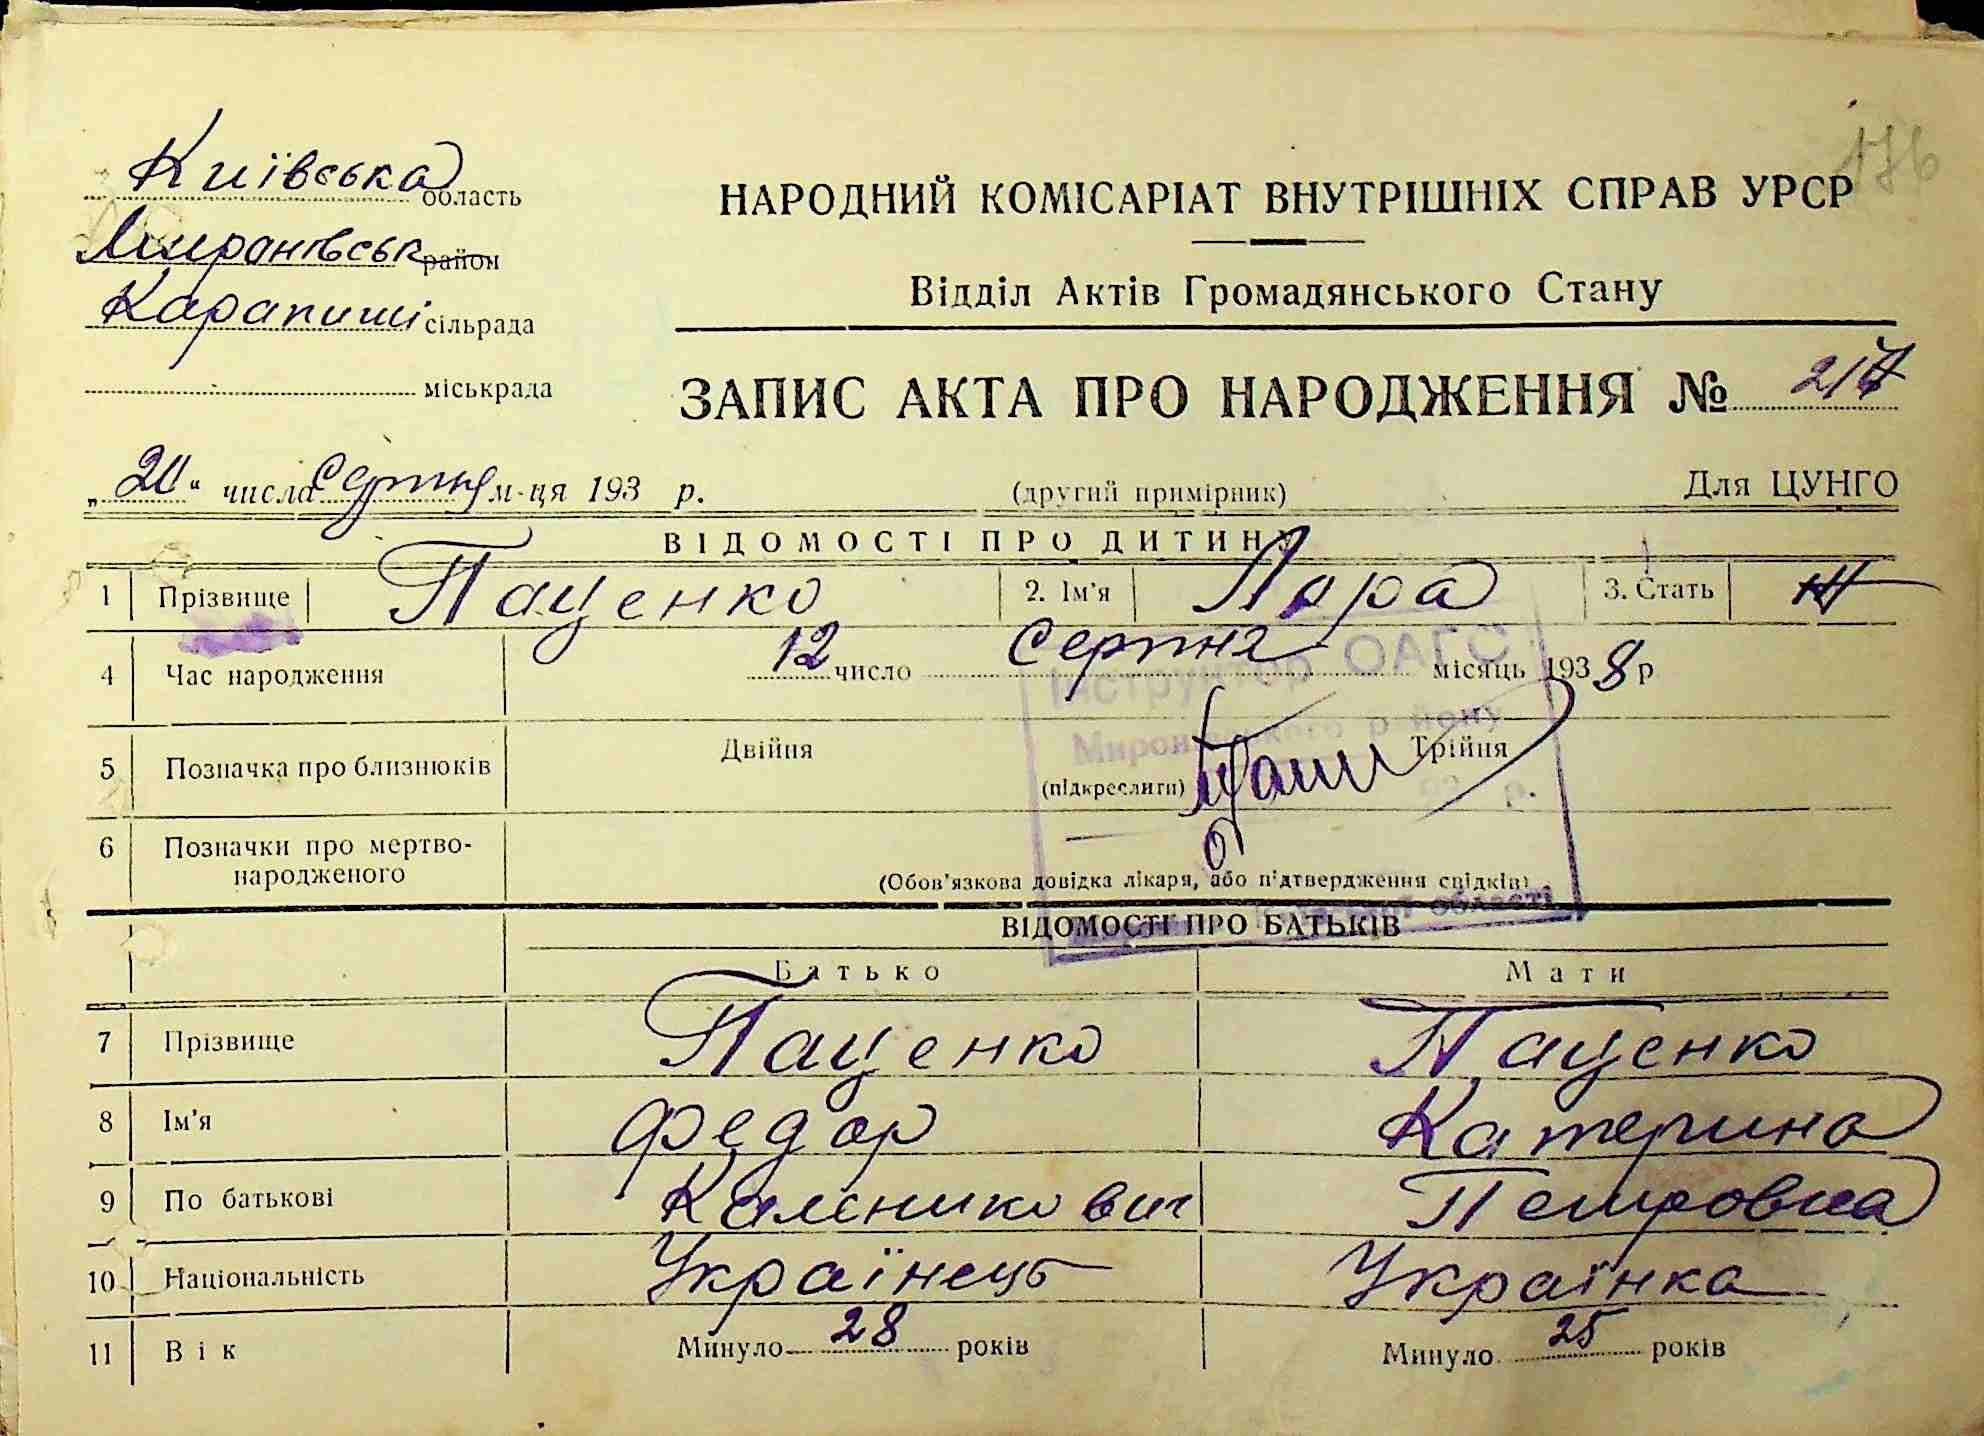 176
Київська область
НАРОДНИЙ КОМІСАРІАТ ВНУТРІШНІХ СПРАВ УРСР
Миронівськ район
Відділ Актів Громадянського Стану
Карапиші сільрада
міськрада
ЗАПИС АКТА ПРО НАРОДЖЕННЯ № 217
„20“ числа серпня м-ця 193 р. (другий примірник) Для ЦУНГО
ВІДОМОСТІ ПРО ДИТИНУ
1 Прізвище Паценко 2. Ім'я Лора 3. Стать
4 Час народження 12 число Серпня місяць 1938 р
Інструктор ОАГС
Миронівського району
5 Позначка про близнюків Двійня (підкреслити) Трійня
р.
6 Позначки про мертво-
народженого (Обов'язкова довідка лікаря, або підтвердження свідків)
області
ВІДОМОСТІ ПРО БАТЬКІВ
Батько Мати
7 Прізвище Паценко Паценко
8 Ім'я Федор Катерина
9 По батькові Каленикович Петровна
10 Національність Українець Українка
11 Вік Минуло 28 років Минуло 25 років